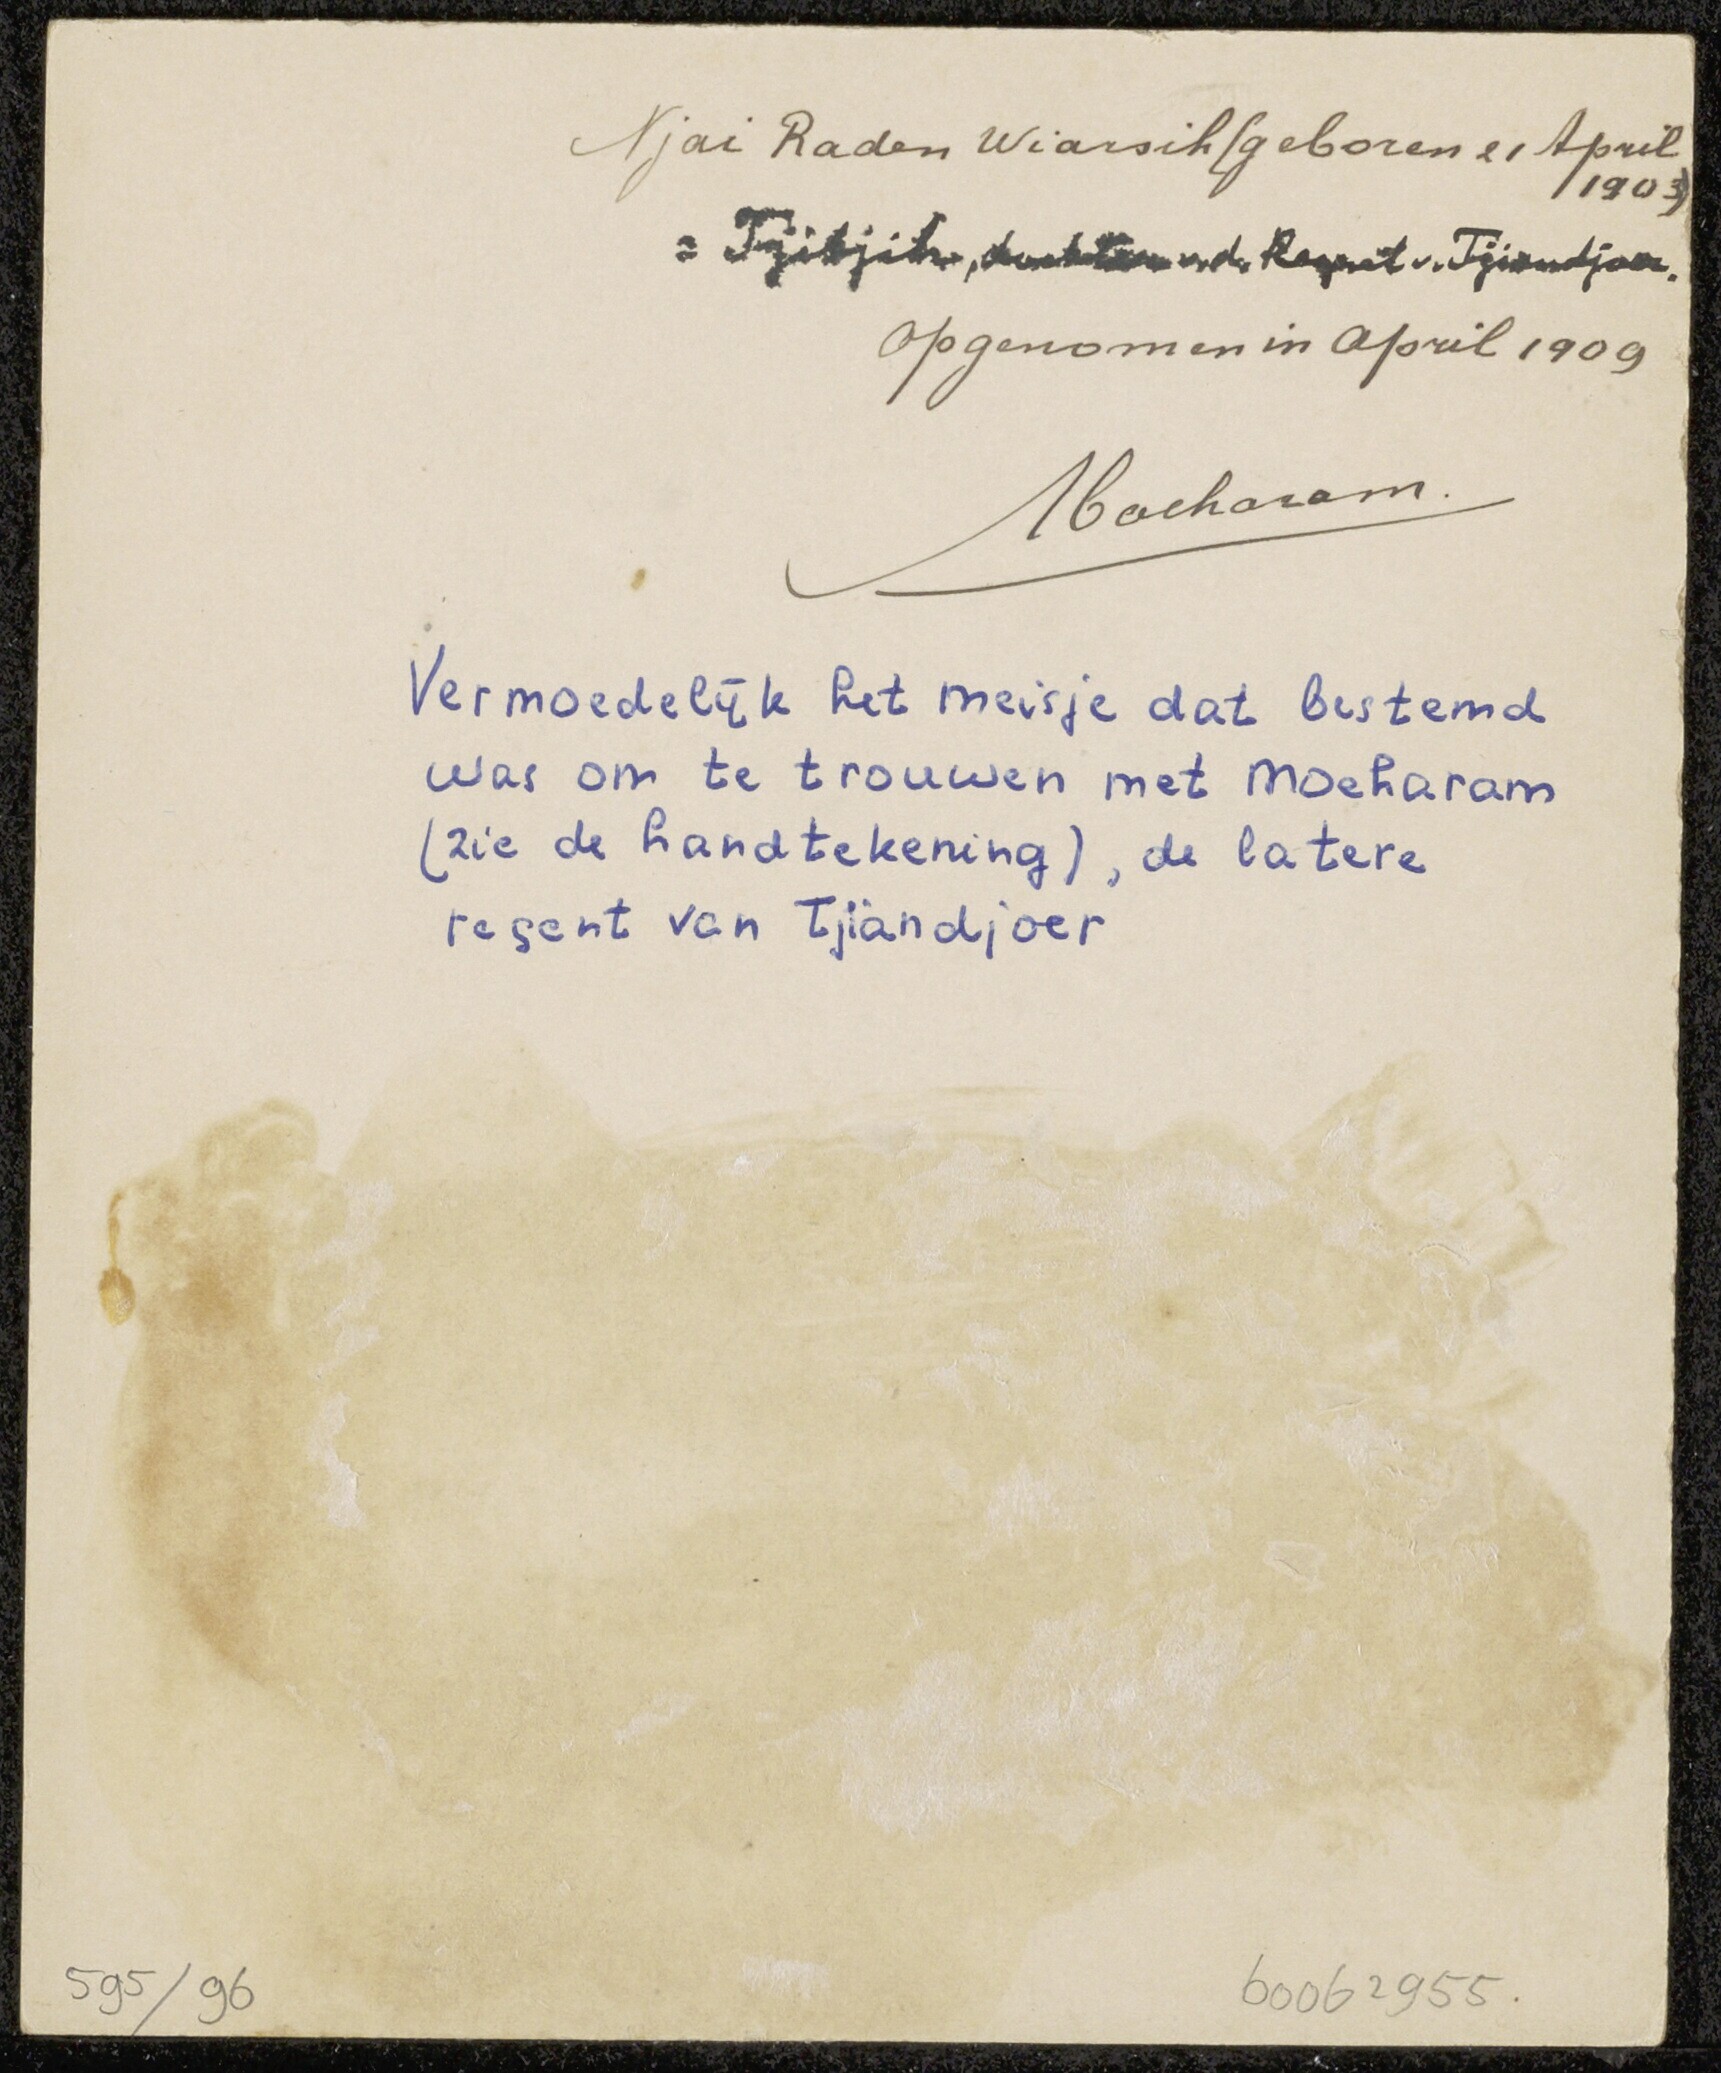 Njai Raden Wiarsih (geboren 21 April
1903)
= Tjitjih, dochter v. d. Regent v. Tjiandjoer.
Opgenomen in April 1909
Moeharam.
Vermoedelijk het meisje dat bestemd
was om te trouwen met Moeharam
(zie de handtekening), de latere
regent van Tjiandjoer
595/96
60062955.